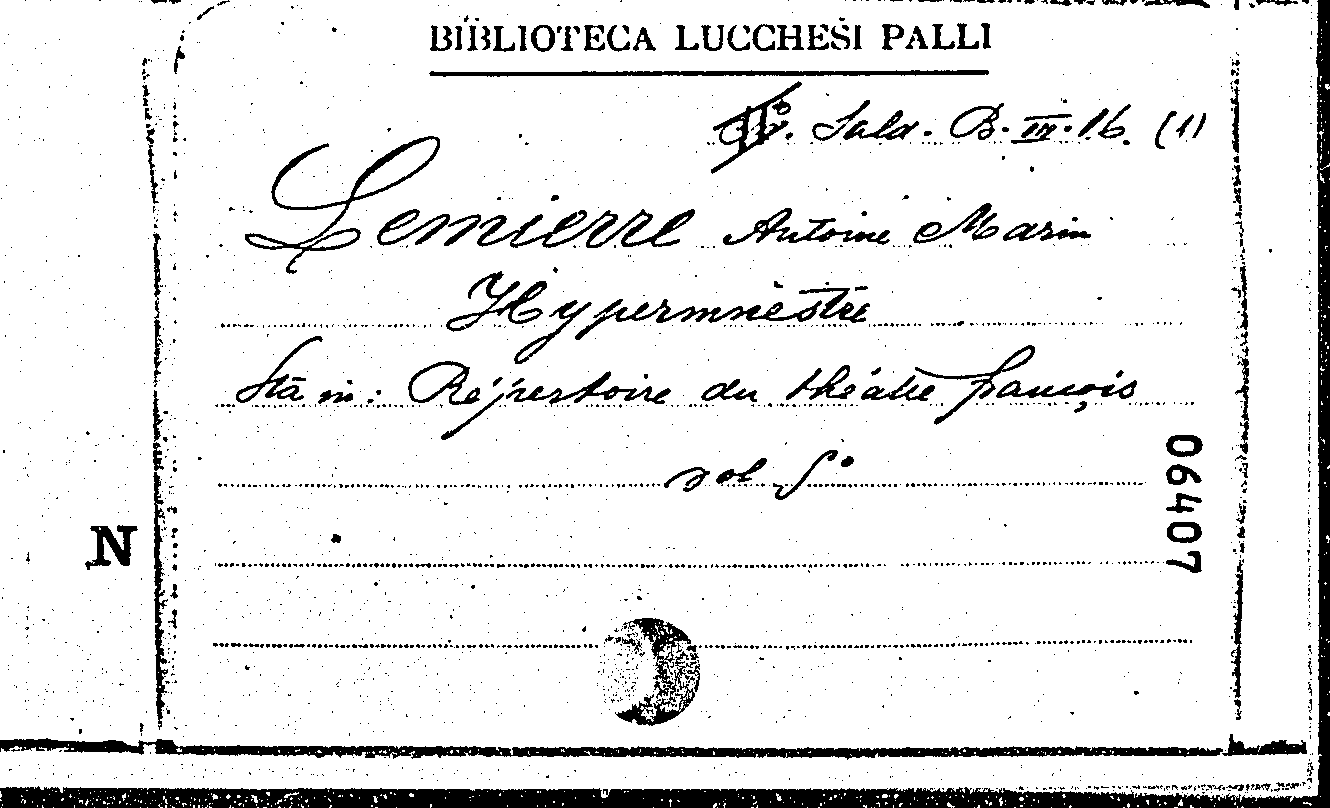 BIBLIOTECA LUCCHESI PALLI
Sala. B. III. 16. (1)
Lemierre Antoine Marin
Hypermnestre
Sta in: Répertoire du théatre françois
vol 5°
06407
N